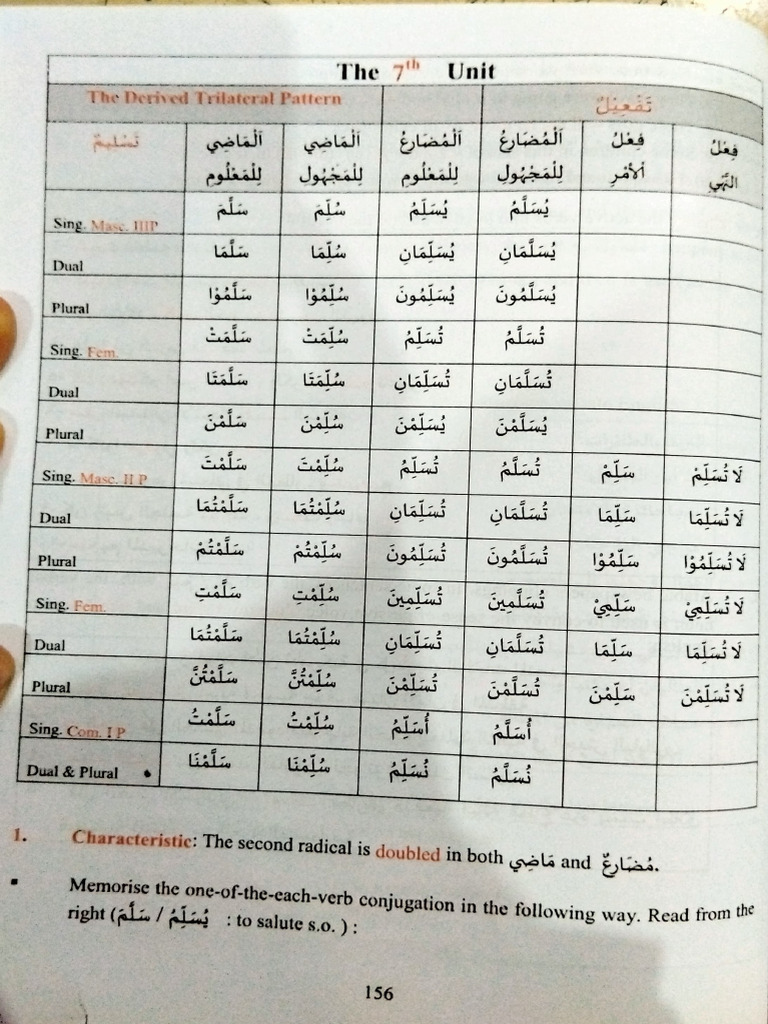 The 7th Unit
The Derived Trilateral Pattern تَفْعِيْلٌ
تَسْلِيمٌ اَلْمَاضِي لِلْمَعْلُومِ اَلْمَاضِي لِلْمَجْهُولِ اَلْمُضَارِعُ لِلْمَعْلُومِ اَلْمُضَارِعُ لِلْمَجْهُولِ فِعْلُ الأَمْرِ فِعْلُ النَّهْيِ
Sing. Masc. IIIP سَلَّمَ سُلِّمَ يُسَلِّمُ يُسَلَّمُ
Dual سَلَّمَا سُلِّمَا يُسَلِّمَانِ يُسَلَّمَانِ
Plural سَلَّمُوْا سُلِّمُوْا يُسَلِّمُونَ يُسَلَّمُونَ
Sing. Fem. سَلَّمَتْ سُلِّمَتْ تُسَلِّمُ تُسَلَّمُ
Dual سَلَّمَتَا سُلِّمَتَا تُسَلِّمَانِ تُسَلَّمَانِ
Plural سَلَّمْنَ سُلِّمْنَ يُسَلِّمْنَ يُسَلَّمْنَ
Sing. Masc. II P سَلَّمْتَ سُلِّمْتَ تُسَلِّمُ تُسَلَّمُ سَلِّمْ لَا تُسَلِّمْ
Dual سَلَّمْتُمَا سُلِّمْتُمَا تُسَلِّمَانِ تُسَلَّمَانِ سَلِّمَا لَا تُسَلِّمَا
Plural سَلَّمْتُمْ سُلِّمْتُمْ تُسَلِّمُونَ تُسَلَّمُونَ سَلِّمُوْا لَا تُسَلِّمُوْا
Sing. Fem. سَلَّمْتِ سُلِّمْتِ تُسَلِّمِينَ تُسَلَّمِينَ سَلِّمِيْ لَا تُسَلِّمِيْ
Dual سَلَّمْتُمَا سُلِّمْتُمَا تُسَلِّمَانِ تُسَلَّمَانِ سَلِّمَا لَا تُسَلِّمَا
Plural سَلَّمْتُنَّ سُلِّمْتُنَّ تُسَلِّمْنَ تُسَلَّمْنَ سَلِّمْنَ لَا تُسَلِّمْنَ
Sing. Com. I P سَلَّمْتُ سُلِّمْتُ أُسَلِّمُ أُسَلَّمُ
Dual & Plural سَلَّمْنَا سُلِّمْنَا نُسَلِّمُ نُسَلَّمُ
1. Characteristic: The second radical is doubled in both مَاضِي and مُضَارِعٌ.
▪ Memorise the one-of-the-each-verb conjugation in the following way. Read from the
right (سَلَّمَ / يُسَلِّمُ : to salute s.o. ) :
156